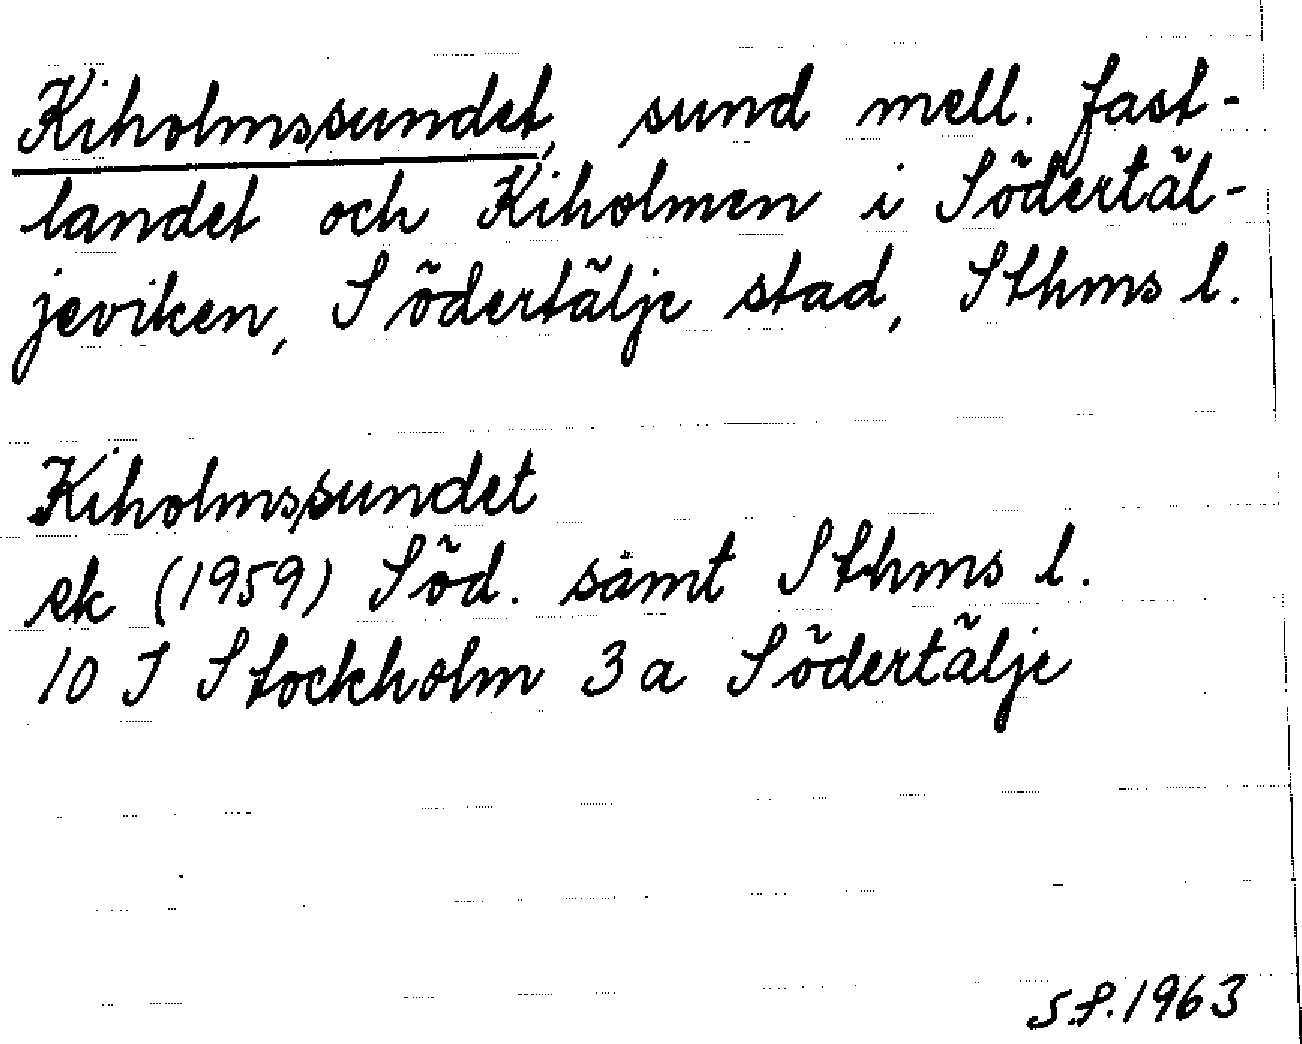 Kiholmssundet, sund mell. fast-
landet och Kiholmen i Södertäl-
jeviken, Södertälje stad, Sthms l.
Kiholmssundet
ek (1959) Söd. samt Sthms l.
10 I Stockholm 3a Södertälje
S.P. 1963